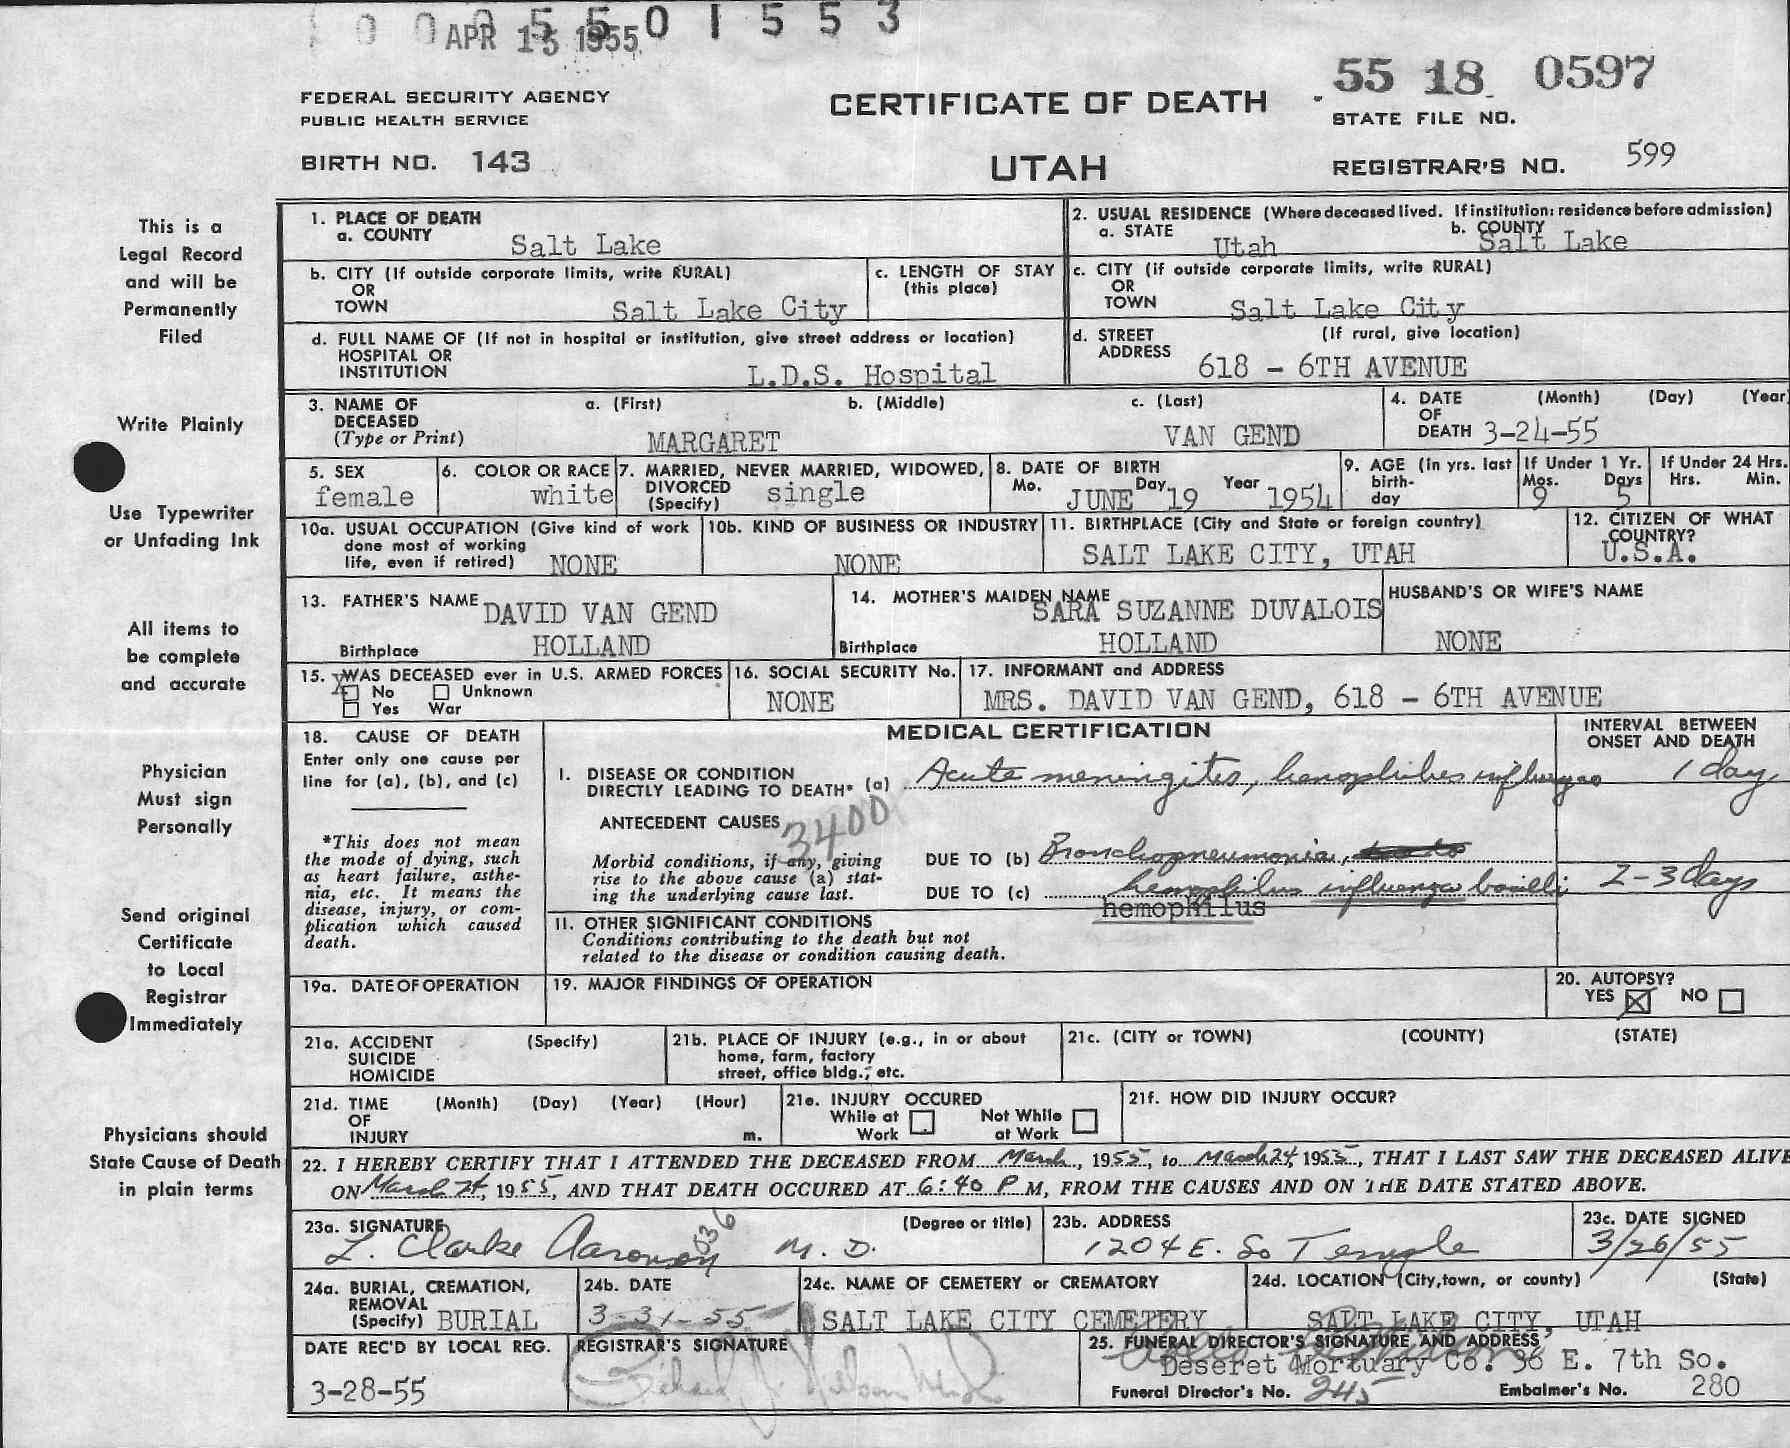 0 0 5 5 0 1 5 5 3
APR 15 1955
55 18 0597
FEDERAL SECURITY AGENCY
PUBLIC HEALTH SERVICE
CERTIFICATE OF DEATH
STATE FILE NO.
BIRTH NO. 143
UTAH
REGISTRAR'S NO. 599
This is a
Legal Record
and will be
Permanently
Filed
Write Plainly
Use Typewriter
or Unfading Ink
All items to
be complete
and accurate
Physician
Must sign
Personally
Send original
Certificate
to Local
Registrar
Immediately
Physicians should
State Cause of Death
in plain terms
1. PLACE OF DEATH
a. COUNTY Salt Lake
2. USUAL RESIDENCE (Where deceased lived. If institution: residence before admission)
a. STATE Utah b. COUNTY Salt Lake
b. CITY (If outside corporate limits, write RURAL)
OR
TOWN Salt Lake City
c. LENGTH OF STAY
(this place)
c. CITY (if outside corporate limits, write RURAL)
OR
TOWN Salt Lake City
d. FULL NAME OF (If not in hospital or institution, give street address or location)
HOSPITAL OR
INSTITUTION L.D.S. Hospital
d. STREET (If rural, give location)
ADDRESS 618 - 6TH AVENUE
3. NAME OF a. (First) b. (Middle) c. (Last)
DECEASED
(Type or Print) MARGARET VAN GEND
4. DATE (Month) (Day) (Year)
OF
DEATH 3-24-55
5. SEX
female
6. COLOR OR RACE
white
7. MARRIED, NEVER MARRIED, WIDOWED,
DIVORCED
(Specify) single
8. DATE OF BIRTH
Mo. Day Year
JUNE 19 1954
9. AGE (in yrs. last
birth-
day
If Under 1 Yr.
Mos. Days
9 5
If Under 24 Hrs.
Hrs. Min.
10a. USUAL OCCUPATION (Give kind of work
done most of working
life, even if retired) NONE
10b. KIND OF BUSINESS OR INDUSTRY
NONE
11. BIRTHPLACE (City and State or foreign country)
SALT LAKE CITY, UTAH
12. CITIZEN OF WHAT
COUNTRY?
U.S.A.
13. FATHER'S NAME DAVID VAN GEND
Birthplace HOLLAND
14. MOTHER'S MAIDEN NAME
SARA SUZANNE DUVALOIS
Birthplace HOLLAND
HUSBAND'S OR WIFE'S NAME
NONE
15. WAS DECEASED ever in U.S. ARMED FORCES
X No Unknown
Yes War
16. SOCIAL SECURITY No.
NONE
17. INFORMANT and ADDRESS
MRS. DAVID VAN GEND, 618 - 6TH AVENUE
18. CAUSE OF DEATH
Enter only one cause per
line for (a), (b), and (c)
*This does not mean
the mode of dying, such
as heart failure, asthe-
nia, etc. It means the
disease, injury, or com-
plication which caused
death.
MEDICAL CERTIFICATION
INTERVAL BETWEEN
ONSET AND DEATH
I. DISEASE OR CONDITION
DIRECTLY LEADING TO DEATH* (a) Acute meningites, hemophilus influenzae 1 day
ANTECEDENT CAUSES 3400
Morbid conditions, if any, giving
rise to the above cause (a) stat-
ing the underlying cause last.
DUE TO (b) Bronchopneumonia,
DUE TO (c) hemophilus influenza bacilli 2-3 days
hemophilus
II. OTHER SIGNIFICANT CONDITIONS
Conditions contributing to the death but not
related to the disease or condition causing death.
19a. DATE OF OPERATION
19. MAJOR FINDINGS OF OPERATION
20. AUTOPSY?
YES X NO
21a. ACCIDENT (Specify)
SUICIDE
HOMICIDE
21b. PLACE OF INJURY (e.g., in or about
home, farm, factory
street, office bldg., etc.
21c. (CITY or TOWN) (COUNTY) (STATE)
21d. TIME (Month) (Day) (Year) (Hour)
OF
INJURY m.
21e. INJURY OCCURED
While at Not While
Work at Work
21f. HOW DID INJURY OCCUR?
22. I HEREBY CERTIFY THAT I ATTENDED THE DECEASED FROM March, 1955, to March 24, 1955, THAT I LAST SAW THE DECEASED ALIVE
ON March 24, 1955, AND THAT DEATH OCCURED AT 6:40 P M, FROM THE CAUSES AND ON THE DATE STATED ABOVE.
23a. SIGNATURE (Degree or title)
L. Clarke Aaronson M.D.
036
23b. ADDRESS
1204 E. So Temple
23c. DATE SIGNED
3/26/55
24a. BURIAL, CREMATION,
REMOVAL
(Specify) BURIAL
24b. DATE
3-31-55
24c. NAME OF CEMETERY or CREMATORY
SALT LAKE CITY CEMETERY
24d. LOCATION (City, town, or county) (State)
SALT LAKE CITY, UTAH
DATE REC'D BY LOCAL REG.
3-28-55
REGISTRAR'S SIGNATURE
25. FUNERAL DIRECTOR'S SIGNATURE AND ADDRESS
Deseret Mortuary Co. 36 E. 7th So.
Funeral Director's No. 245 Embalmer's No. 280